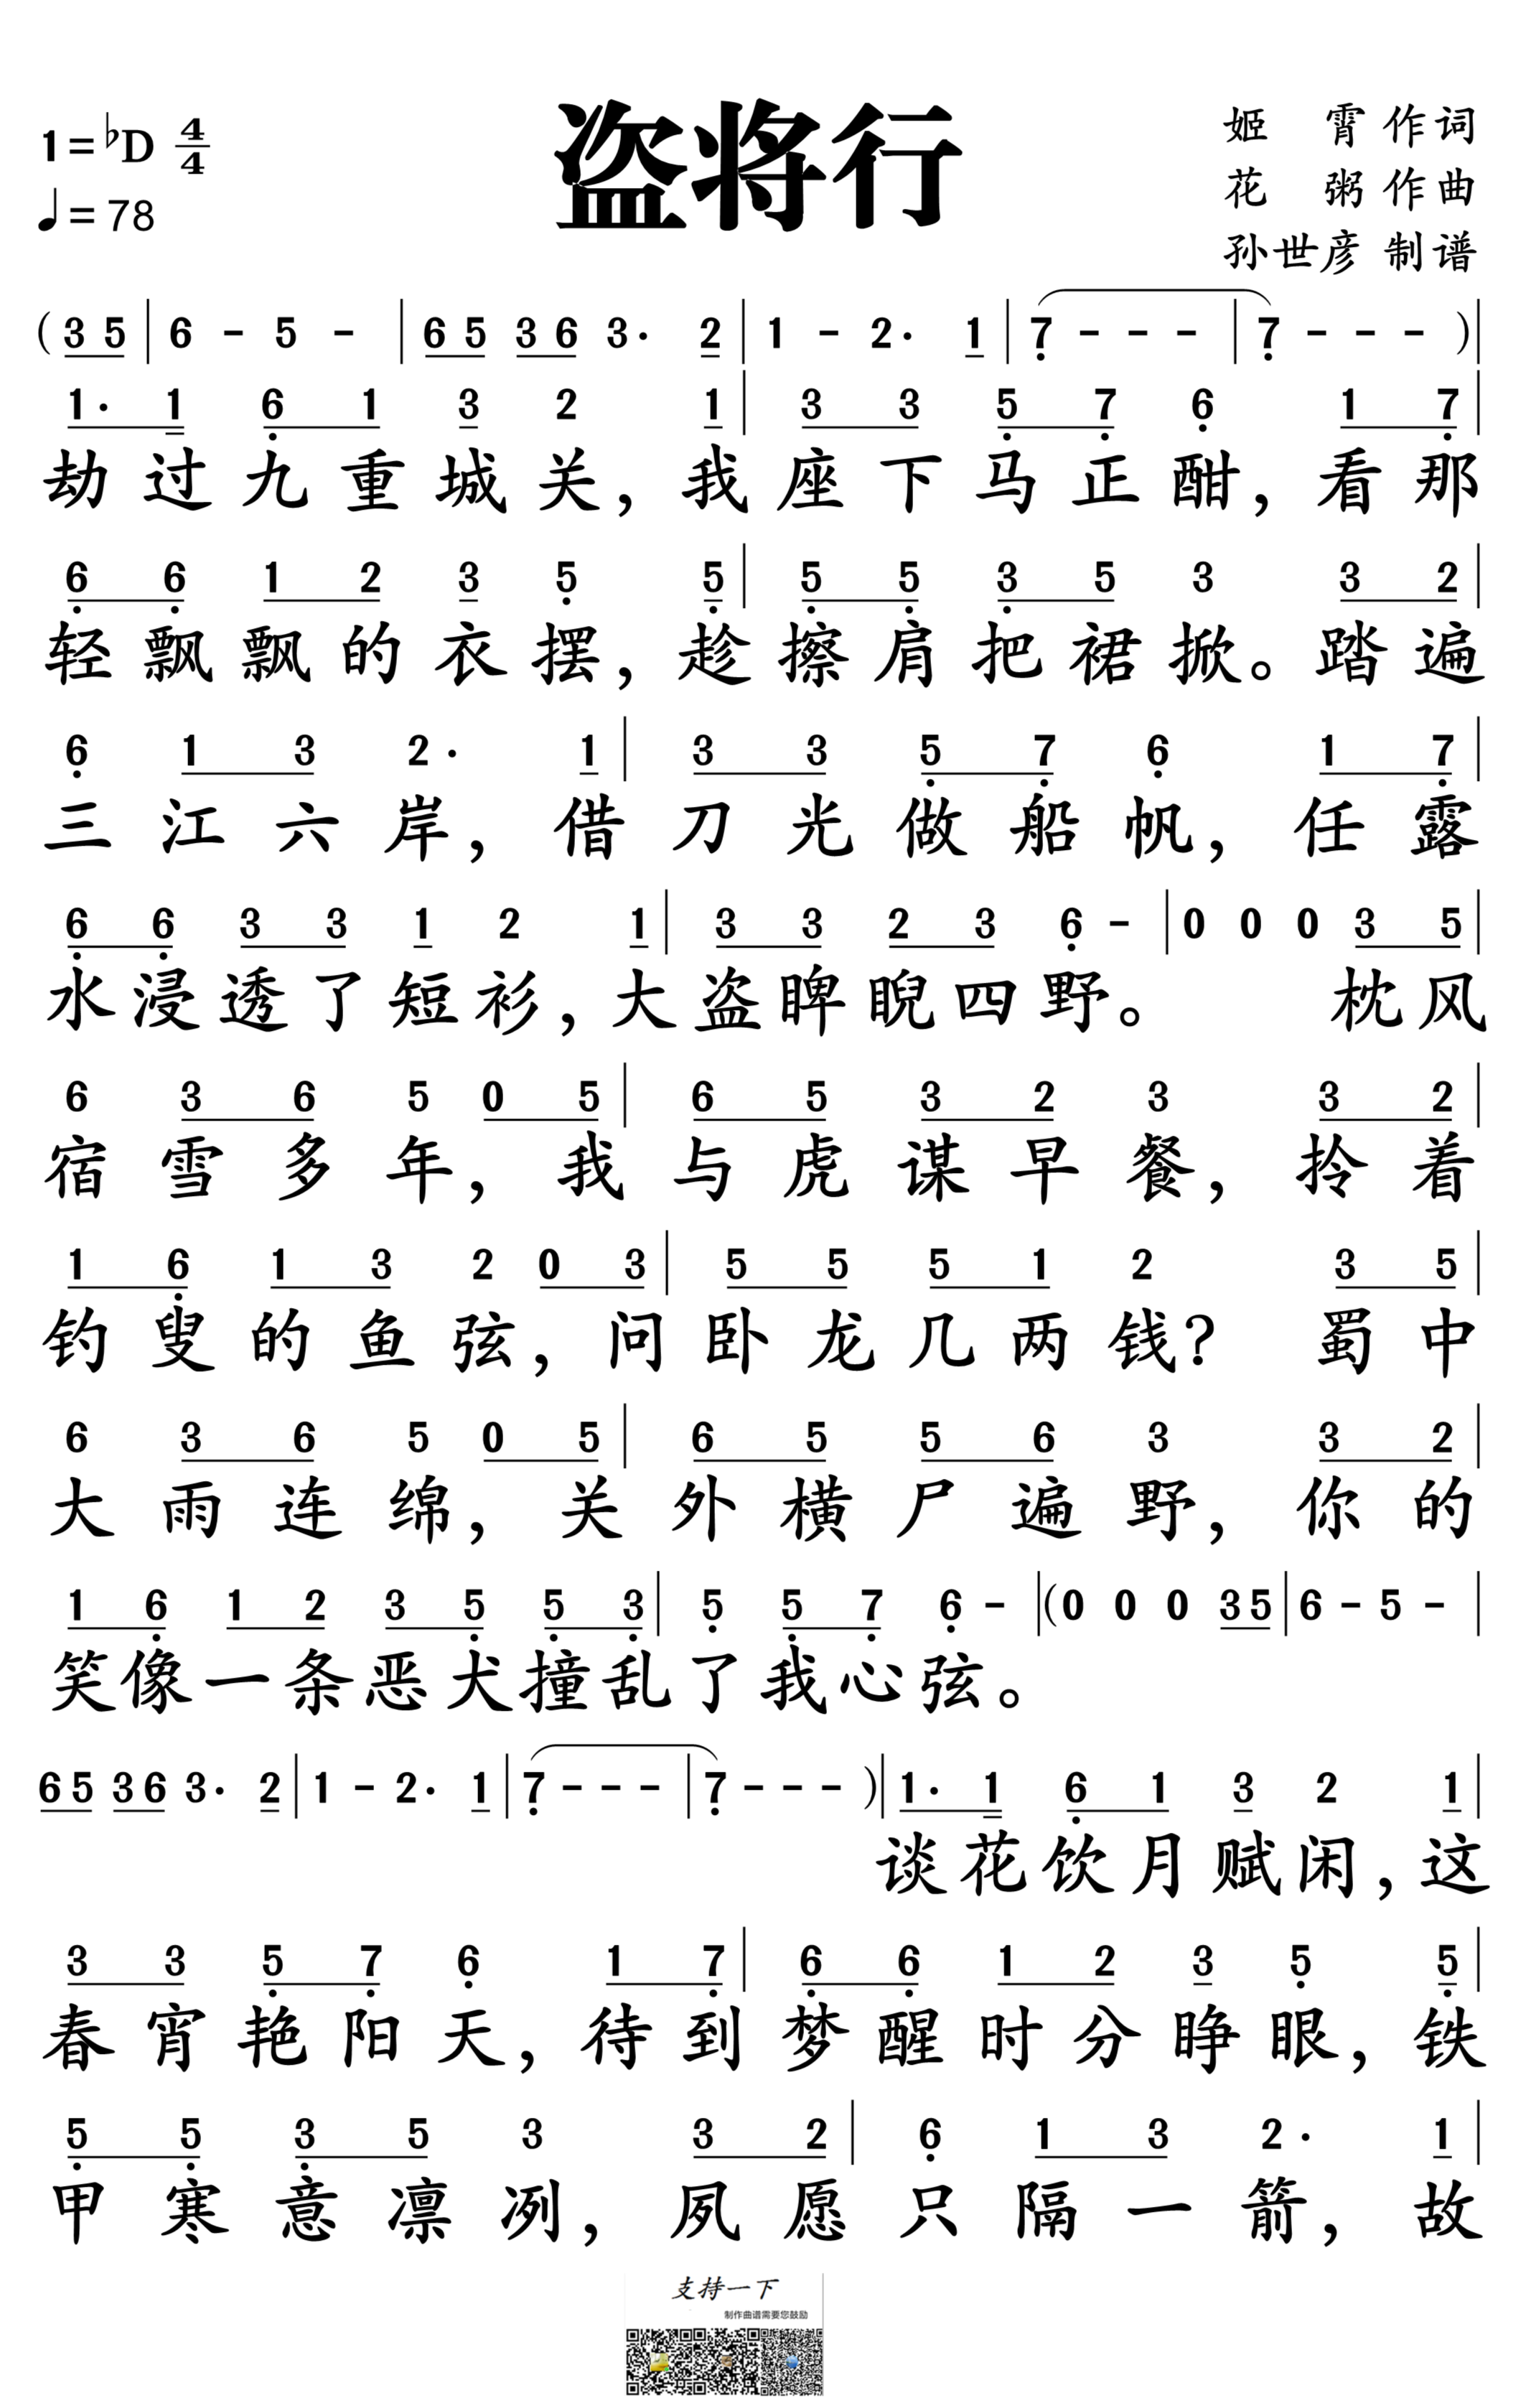 盗将行
1=♭D 4/4
♩=78
姬 霄 作词
花 粥 作曲
孙世彦 制谱
( 3 5 | 6 - 5 - | 6 5 3 6 3· 2 | 1 - 2· 1 | 7 - - - | 7 - - - ) |
1· 1 6 1 3 2 1 | 3 3 5 7 6 1 7 |
劫过九重城关，我座下马正酣，看那
6 6 1 2 3 5 5 | 5 5 3 5 3 3 2 |
轻飘飘的衣摆，趁擦肩把裙掀。踏遍
6 1 3 2· 1 | 3 3 5 7 6 1 7 |
三江六岸，借刀光做船帆，任露
6 6 3 3 1 2 1 | 3 3 2 3 6 - | 0 0 0 3 5 |
水浸透了短衫，大盗睥睨四野。 枕风
6 3 6 5 0 5 | 6 5 3 2 3 3 2 |
宿雪多年，我与虎谋早餐，拎着
1 6 1 3 2 0 3 | 5 5 5 1 2 3 5 |
钓叟的鱼弦，问卧龙几两钱？ 蜀中
6 3 6 5 0 5 | 6 5 5 6 3 3 2 |
大雨连绵，关外横尸遍野，你的
1 6 1 2 3 5 5 3 | 5 5 7 6 - | ( 0 0 0 3 5 | 6 - 5 - |
笑像一条恶犬撞乱了我心弦。
6 5 3 6 3· 2 | 1 - 2· 1 | 7 - - - | 7 - - - ) | 1· 1 6 1 3 2 1 |
谈花饮月赋闲，这
3 3 5 7 6 1 7 | 6 6 1 2 3 5 5 |
春宵艳阳天，待到梦醒时分睁眼，铁
5 5 3 5 3 3 2 | 6 1 3 2· 1 |
甲寒意凛冽，夙愿只隔一箭，故
支持一下
制作曲谱需要您鼓励